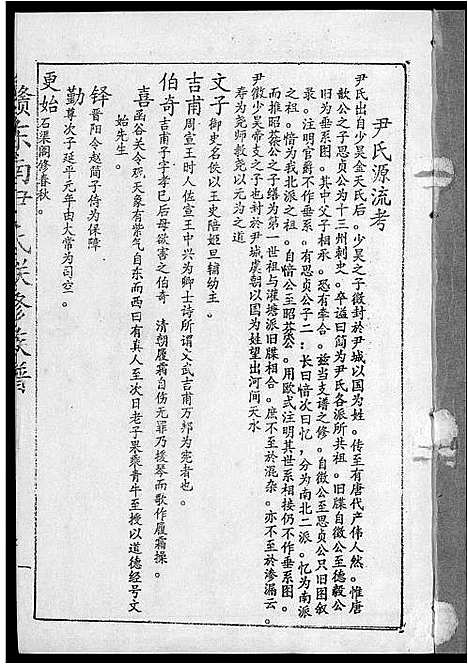 尹氏源流考
尹氏出自少昊金天氏后。少昊之子徵封於尹城以国为姓。传至有唐代产伟人然。惟唐
敔公之子思贞公为十三州刺史。卒谥曰简为尹氏各派所共祖。旧牒自微公至德毅公
旧为垂系图。其中父子相承。恐有牵合。兹当支谱之修。自微公至思贞公只旧图叙
录。注明官爵不作垂系。有思贞公子二：长曰愔次曰忆，分为南北二派。忆为南派
之祖。愔为我北派之祖。自愔公至昭菾公。用欧式注明其世系相接仍不作垂系图。
而推昭菾公之子缮为第一世祖与灌塘派旧牒相合。庶不至於混杂。亦不至於渗漏云。
尹徵少昊帝支之子也封於尹城虞朝以国为姓望出河间天水
寿为尧师教尧以无为之道
文子 御史名佚以王史陪姬旦辅幼主。
吉甫 周宣王时人佐宣王中兴为卿士诗所谓文武吉甫万邦为宪者也。
伯奇 吉甫子字孝巳后母欲害之伯奇 清朝履霜自伤无罪乃援琴而歌作履霜操。
喜 函谷关令观天象有紫气自东而西曰有真人至次日老子果乘青牛至授以道德经号文
始先生。
铎 晋阳令赵简子倚为保障
勤 尊次子延平元年由太常为司空。
更始 石渠阁修春秋。
赣东南尹氏联修族谱
一